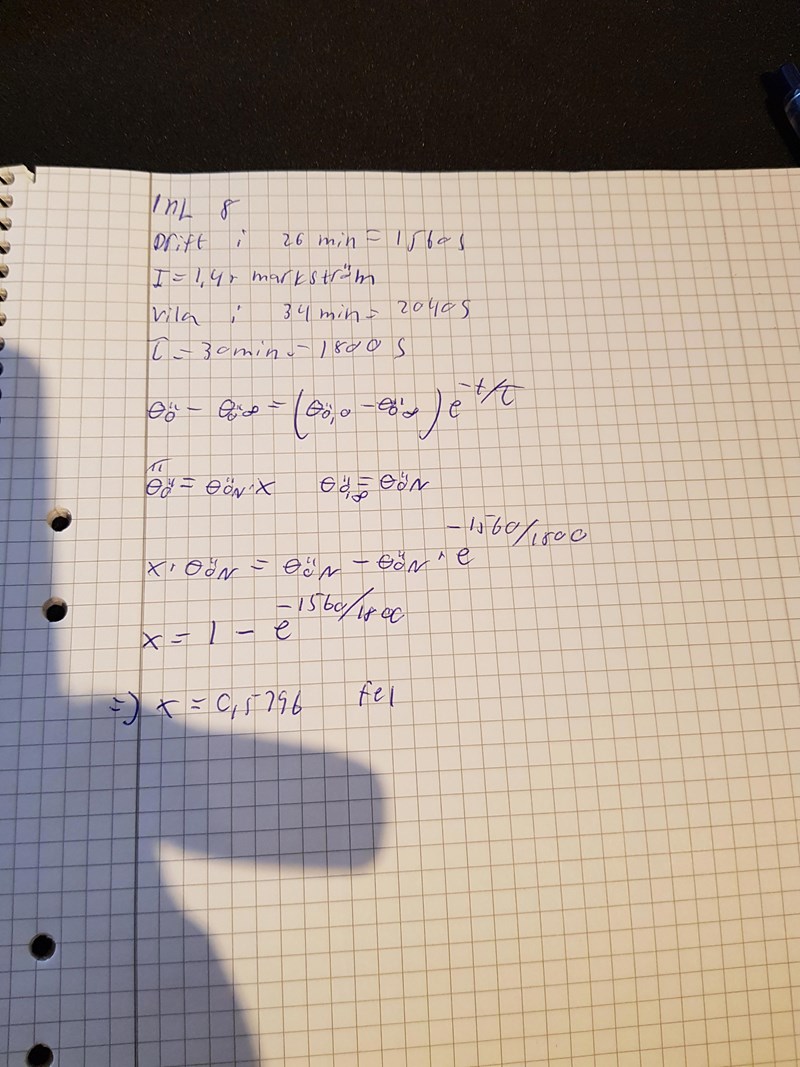 INL 8
Drift i 26 min = 1560 s
I = 1,4 · markström
Vila i 34 min = 2040 s
τ = 30 min = 1800 s
θö - θö∞ = (θö,0 - θö∞) e^-t/τ
θ̂ö = θöN · x   θö,∞ = θöN
x · θöN = θöN - θöN · e^-1560/1800
x = 1 - e^-1560/1800
=> x = 0,5796   fel